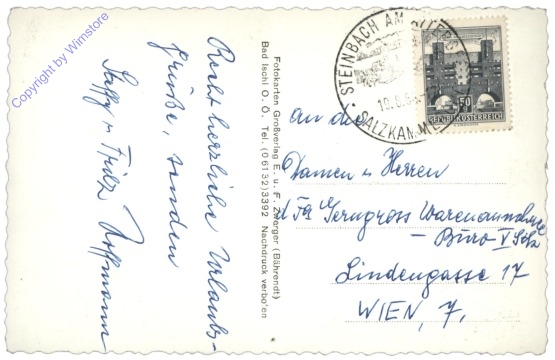 Copyright by Wimstore
Recht herzliche Urlaubs-
grüße, senden
Steffy u Fritz Hoffmann
Fotokarten Großverlag E. u. F. Zwerger (Bährendt)
Bad Ischl O. Ö. Tel. (06132) 3392 Nachdruck verbo'en
STEINBACH AM ATTERSEE
SALZKAMMERGUT
50
REPUBLIK ÖSTERREICH
An die
Damen u Herren
d Fa Gerngross Warenannahme
- Büro V Stk
Lindengasse 17
WIEN, 7.